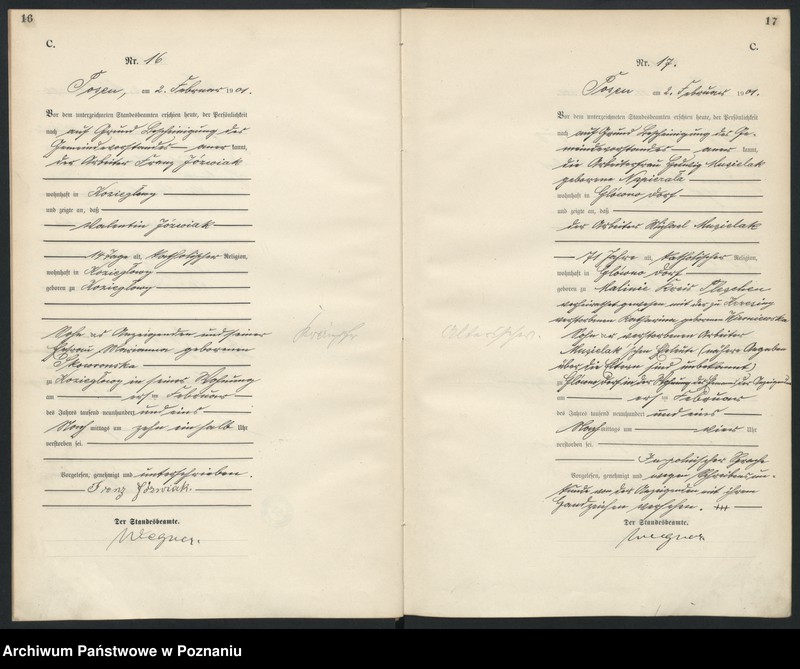 16
C.
Nr. 16
Posen, am 2. Februar 1901.
Vor dem unterzeichneten Standesbeamten erschien heute, der Persönlichkeit
nach auf Grund Bescheinigung des
Gemeindevorstandes anerkannt,
der Arbeiter Franz Jóźwiak
wohnhaft in Koziegłowy
und zeigte an, daß
Valentin Jóźwiak
14 Tage alt, katholischer Religion,
wohnhaft in Koziegłowy
geboren zu Koziegłowy
Sohn des Anzeigenden und seiner
Ehefrau Marianna geborenen
Skowronska
zu Koziegłowy in seiner Wohnung
am ersten Februar
des Jahres tausend neunhundert und eins
Nachmittags um zehn einhalb Uhr
verstorben sei.
Vorgelesen, genehmigt und unterschrieben.
Franz Jóźwiak.
Der Standesbeamte.
Wegner.
Krämpfe
17
C.
Nr. 17.
Posen am 2. Februar 1901.
Vor dem unterzeichneten Standesbeamten erschien heute, der Persönlichkeit
nach auf Grund Bescheinigung des Ge-
meindevorstandes anerkannt,
die Arbeiterfrau Hedwig Muzielak
geborene Napierala
wohnhaft in Głowno Dorf
und zeigte an, daß
der Arbeiter Michael Muzielak
71 Jahre alt, katholischer Religion,
wohnhaft in Głowno Dorf
geboren zu Malinie Kreis Pleschen
verheirathet gewesen mit der zu
verstorbenen Katharina geborenen
Sohn der verstorbenen Arbeiter
Muzielak'schen Eheleute (nähere Angaben
über die Eltern sind unbekannt)
zu Głowno Dorf in der Wohnung der Anzeigenden
am ersten Februar
des Jahres tausend neunhundert und eins
Nachmittags um vier Uhr
verstorben sei.
In polnischer Sprache
Vorgelesen, genehmigt und wegen Schreibensun-
kunde von der Anzeigenden mit ihrem
Handzeichen versehen. +++
Der Standesbeamte.
Wegner
Altersschw.
Archiwum Państwowe w Poznaniu